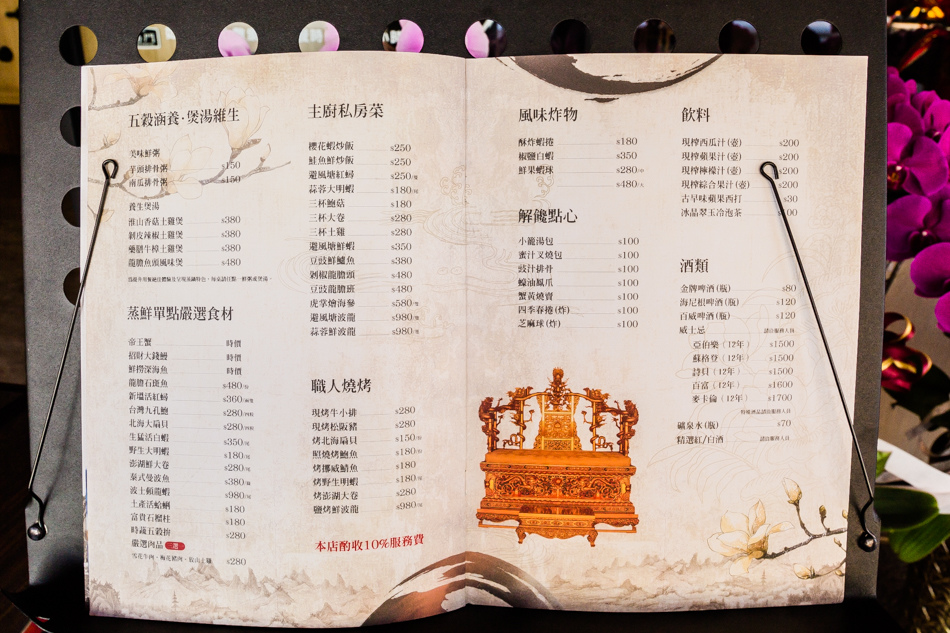 五穀涵養·煲湯維生
美味鮮粥
芋頭排骨粥 $150
南瓜排骨粥 $150
養生煲湯
淮山香菇土雞煲 $380
剝皮辣椒土雞煲 $380
藥膳牛樟土雞煲 $380
龍膽魚頭風味煲 $480
蒸鮮單點嚴選食材
帝王蟹 時價
招財大錢鰻 時價
鮮撈深海魚 時價
龍膽石斑魚 $480
新塭活紅蟳 $360
台灣九孔鮑 $280
北海大扇貝 $280
生猛活白蝦 $350
野生大明蝦 $180
澎湖鮮大卷 $280
泰式曼波魚 $380
波士頓龍蝦 $980
土產活蛤蜊 $180
富貴石榴桂 $180
時蔬五穀拚 $280
嚴選肉品
$280
主廚私房菜
櫻花蝦炒飯 $250
鮭魚鮮炒飯 $250
避風塘紅蟳 $250
蒜蓉大明蝦 $180
三杯鮑菇 $180
三杯大卷 $280
三杯土雞 $280
避風塘鮮蝦 $350
豆豉鮮鱸魚 $380
剁椒龍膽頭 $480
豆豉龍膽班 $480
虎掌燴海參 $580
避風塘波龍 $980
蒜蓉鮮波龍 $980
職人燒烤
現烤牛小排 $280
現烤松阪豬 $280
烤北海扇貝 $150
照燒烤鮑魚 $180
烤挪威鯖魚 $180
烤野生明蝦 $180
烤澎湖大卷 $280
鹽烤鮮波龍 $980
本店酌收10%服務費
風味炸物
酥炸蝦捲 $180
椒鹽白蝦 $350
鮮果蝦球 $280
$480
解饞點心
小籠湯包 $100
蜜汁叉燒包 $100
豉汁排骨 $100
蠔油鳳爪 $100
蟹黃燒賣 $100
四季春捲(炸) $100
芝麻球(炸) $100
飲料
現榨西瓜汁(壺) $200
現榨蘋果汁(壺) $200
現榨檸檬汁(壺) $200
現榨綜合果汁(壺) $200
古早味蘋果西打 $30
冰晶翠玉冷泡茶
酒類
金牌啤酒(瓶) $80
海尼根啤酒(瓶) $120
百威啤酒(瓶) $120
威士忌 請洽服務人員
亞伯樂(12年) $1500
蘇格登(12年) $1500
詩貝(12年) $1500
百富(12年) $1600
麥卡倫(12年) $1700
礦泉水(瓶) $70
精選紅/白酒 請洽服務人員